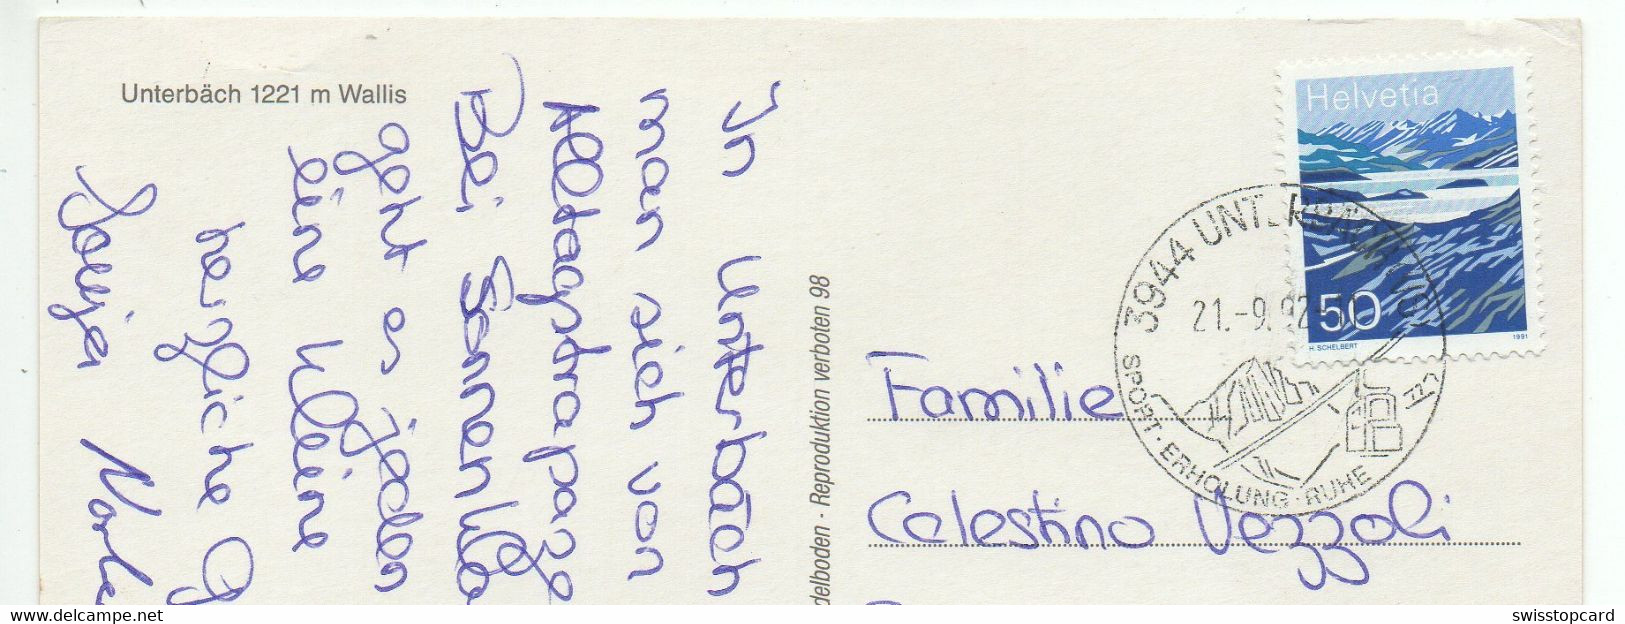 Unterbäch 1221 m Wallis
In Unterbäch
man sich von
Alltagstrapaze
Bei Sonnen
geht es jeden
eine kleine
herzliche
Sonja
delboden - Reproduktion verboten 98
Helvetia
50
H. SCHELBERT
1991
3944 UNTERBÄCH (VS)
21.-9.92
SPORT · ERHOLUNG · RUHE
Familie
Celestino Vezzoli
www.delcampe.net
swisstopcard